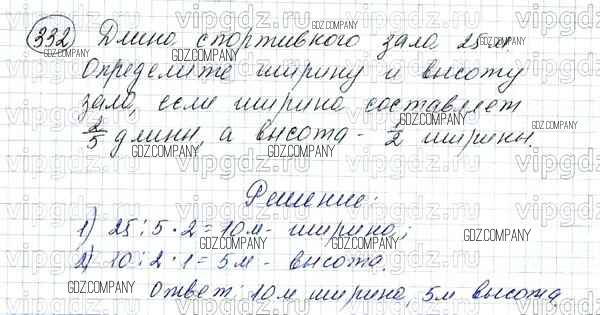 332 Длина спортивного зала 25 м
Определите ширину и высоту
зала, если ширина составляет
2/5 длины, а высота - 1/2 ширины.
Решение:
1) 25 : 5 · 2 = 10 м - ширина;
2) 10 : 2 · 1 = 5 м - высота.
Ответ: 10 м ширина, 5 м высота